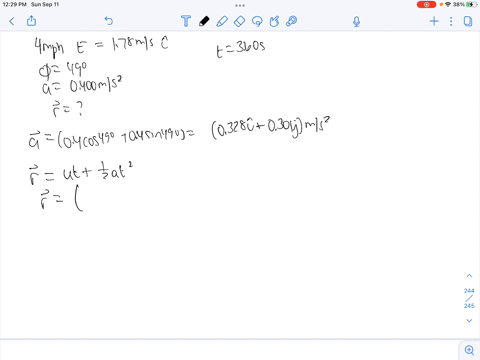 12:29 PM Sun Sep 11
38%
4mph E = 1.78m/s î
t = 360s
φ = 49°
a = 0.400m/s²
r⃗ = ?
a⃗ = (0.4cos49° + 0.4sin49°) = (0.328î + 0.30ĵ) m/s²
r⃗ = ut + ½at²
r⃗ = (
244
245